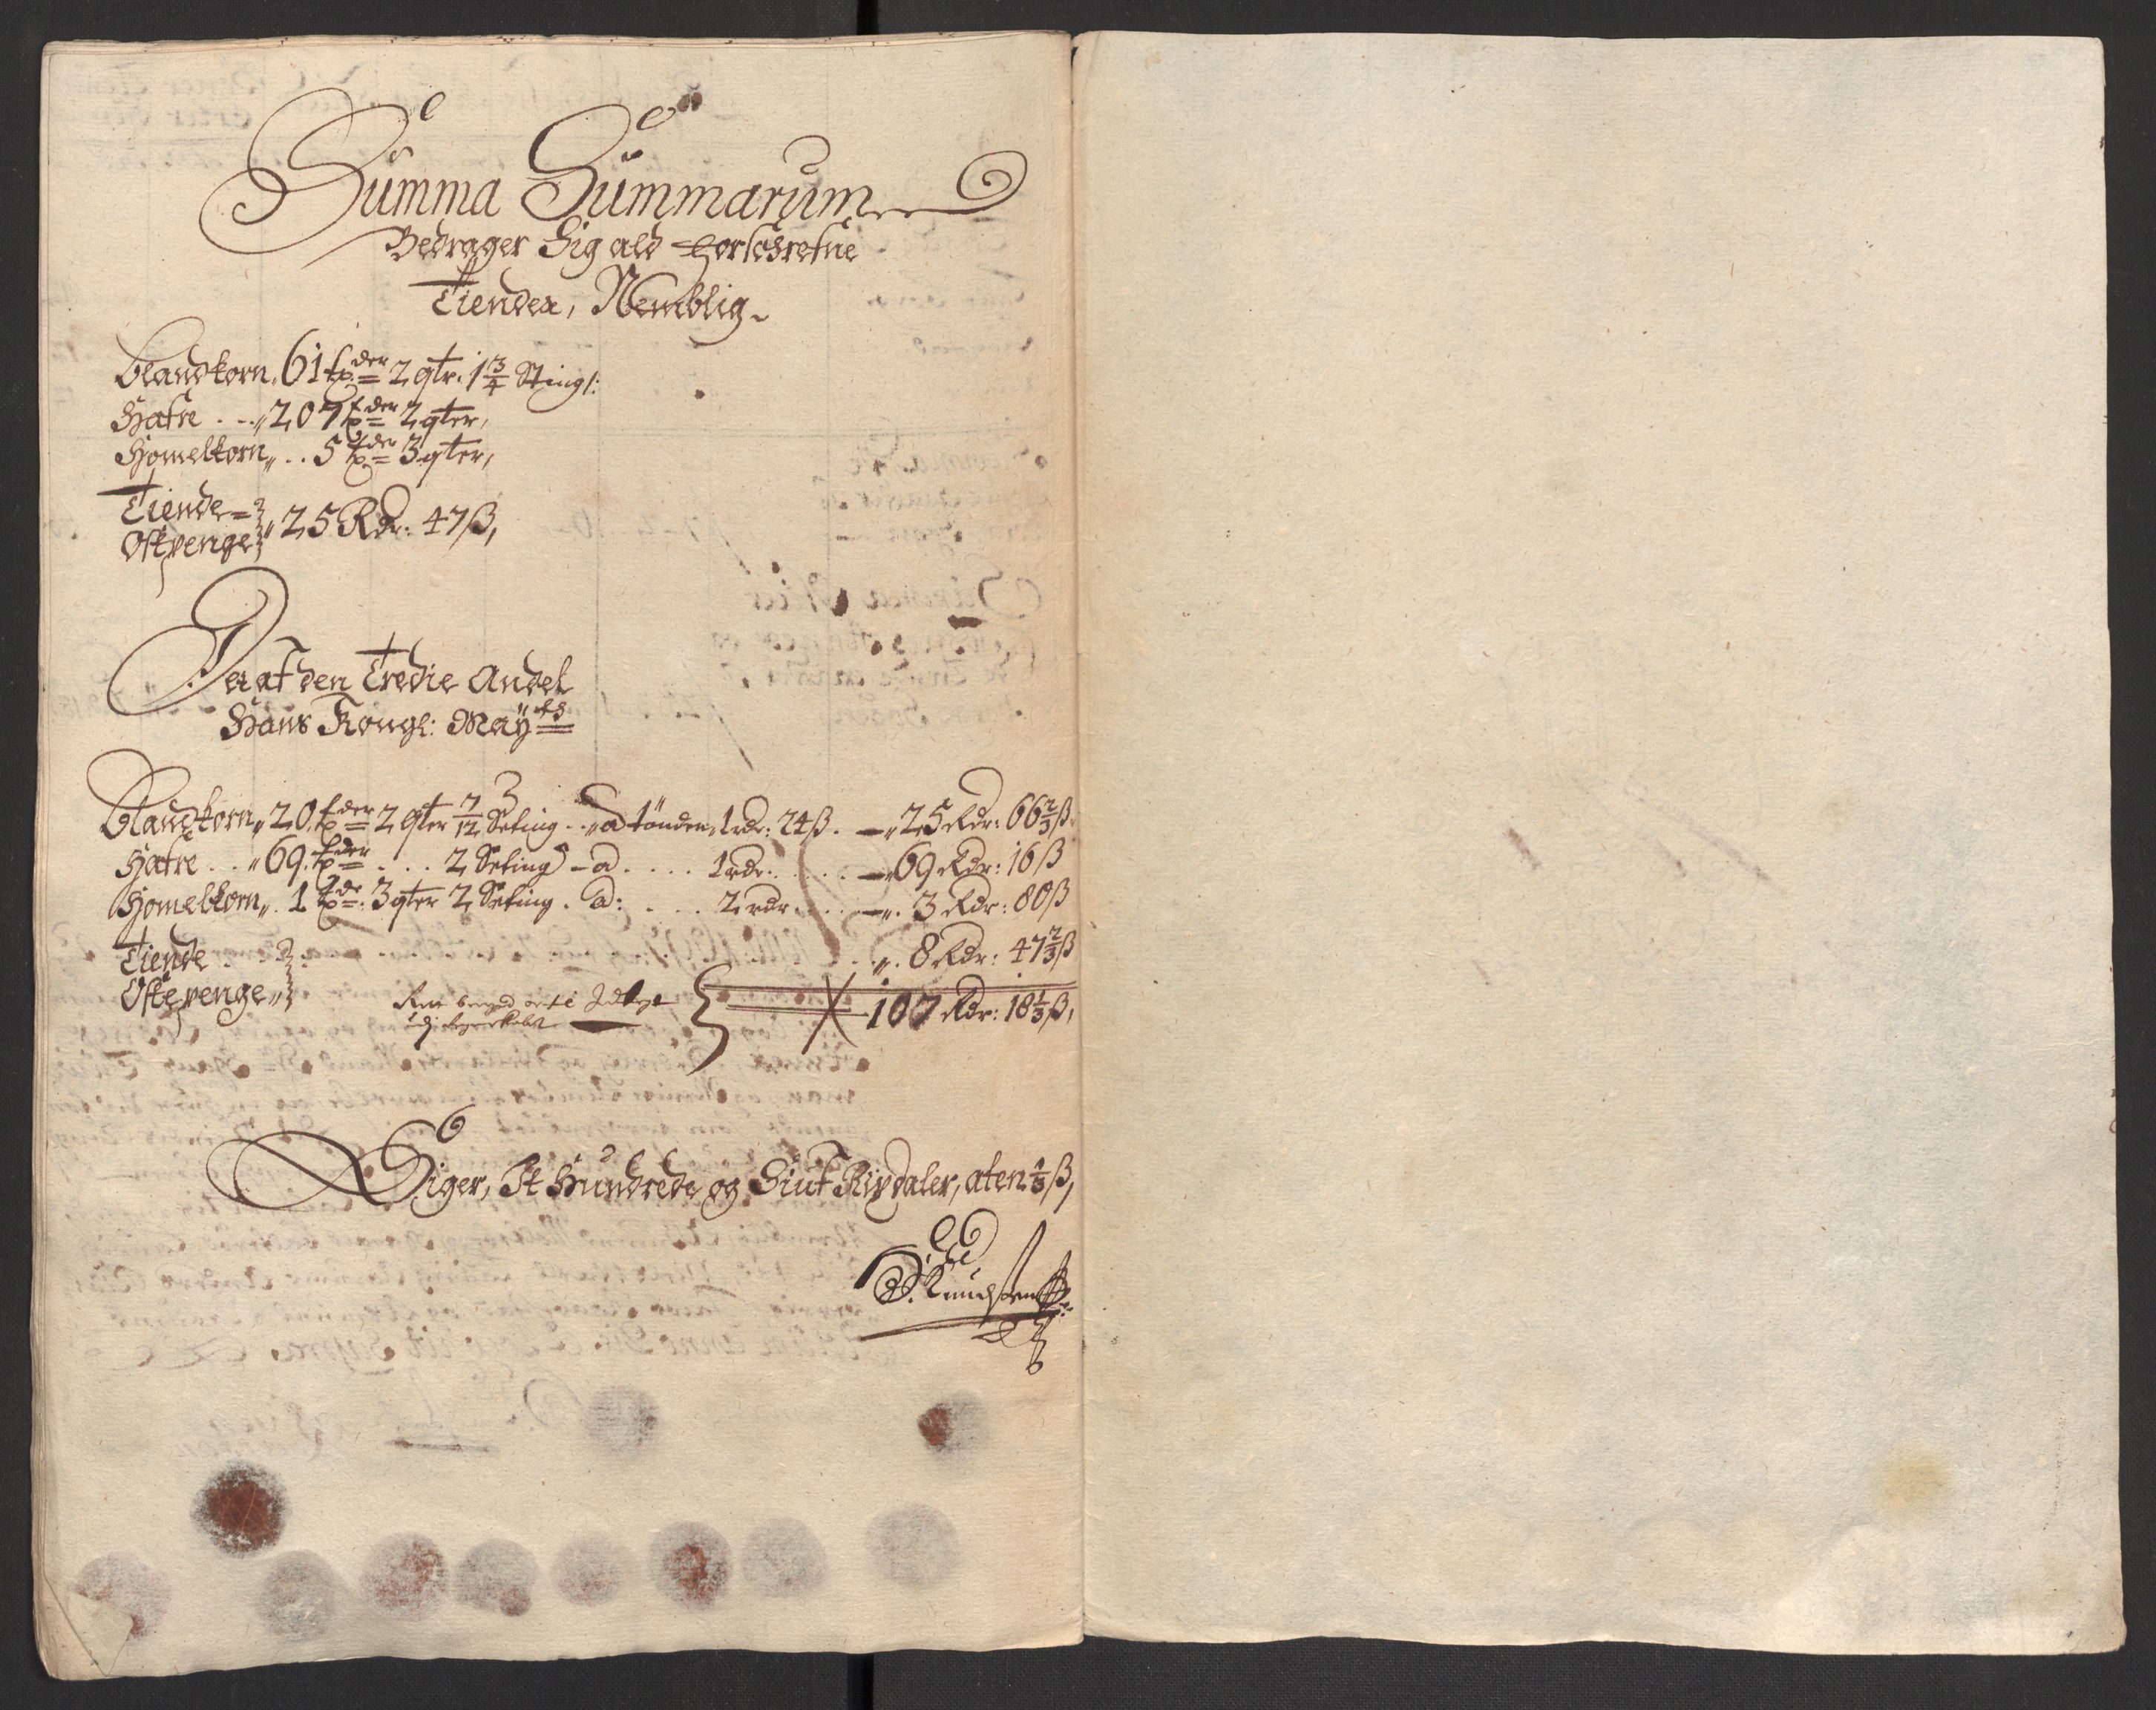 Summa Summarum
Bedrager Sig ald forschrefne
Tiender, Nemblig.
Blandkorn. 61 td̲er̲ 2 qtr. 1¾ Sting:
Hafre . . „ 207 tder 2 qter,
Homelkorn „ . . 5 tder 3 qter,
Tiende=
Ostpenge „ 25 Rdr: 47 ß,
Der af den Tredie Andel
Hans Kongl: Maÿts
Blandkorn „ 20 tder 2 qter 7/12 Seting . . „ a tönden 1 rdr: 24 ß. — „ 25 Rdr: 66⅔ ß
Hafre . . „ 69. tder . . . 2 Seting – a . . . . 1 rdr: . . . . — „ 69 Rdr: 16 ß
Homelkorn „ . 1 tde: 3 qter 2 Seting . a: . . . . 2 rdr . . . . — „ . 3 Rdr: 80 ß
Tiende . . . . . . „ . 8 Rdr: 47⅔ ß
Ostepenge „
107 Rdr: 18⅓ ß,
Siger, Et Hundrede og Siuf Rixdaler, aten ⅓ ß,
Knudsen